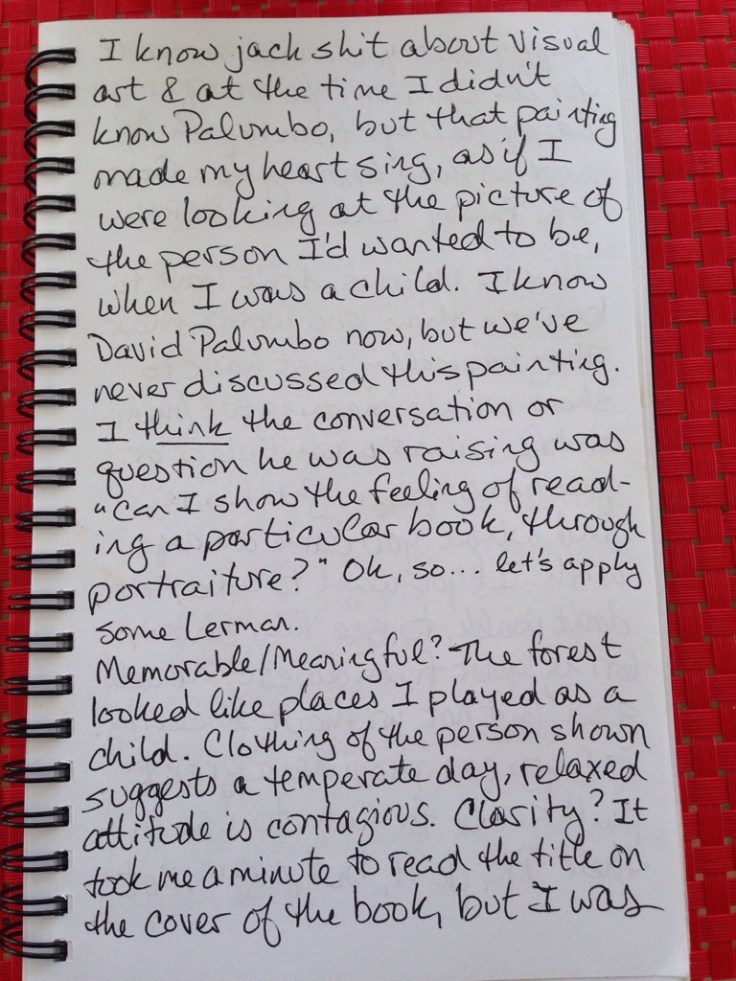 I know jack shit about visual
art & at the time I didn't
know Palumbo, but that painting
made my heart sing, as if I
were looking at the picture of
the person I'd wanted to be,
when I was a child. I know
David Palumbo now, but we've
never discussed this painting.
I think the conversation or
question he was raising was
"Can I show the feeling of read-
ing a particular book, through
portraiture?" Ok, so... let's apply
some Lerman.
Memorable/Meaningful? The forest
looked like places I played as a
child. Clothing of the person shown
suggests a temperate day, relaxed
attitude is contagious. Clarity? It
took me a minute to read the title on
the cover of the book, but I was